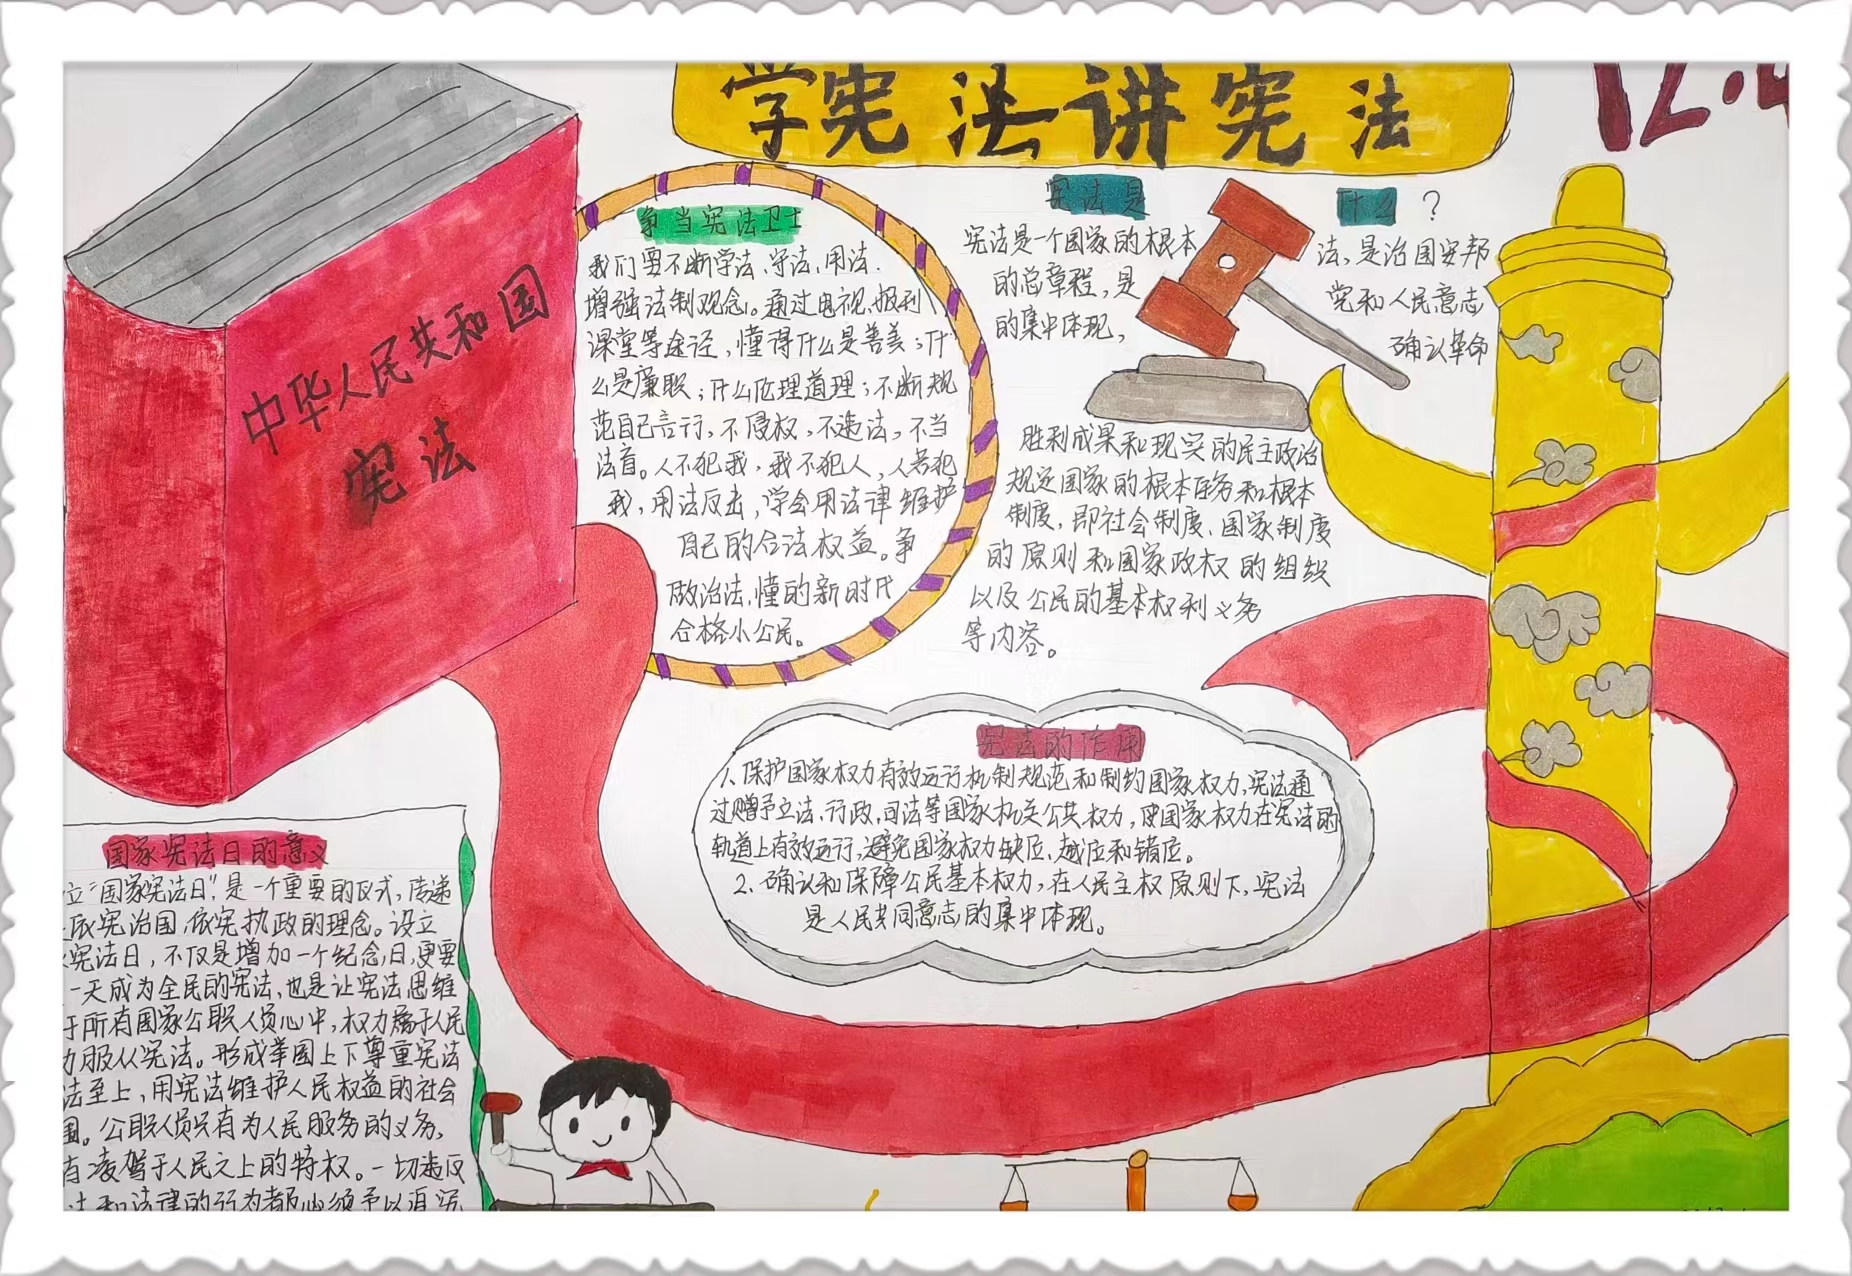 学宪法讲宪法
12.4
中华人民共和国
宪法
争当宪法卫士
我们要不断学法、守法、用法.
增强法制观念。通过电视、报刊、
课堂等途径，懂得什么是善美；什
么是廉耻；什么伦理道理；不断规
范自己言行，不侵权，不违法，不当
法盲。人不犯我，我不犯人，人若犯
我，用法反击，学会用法律维护
自己的合法权益。争
做治法、懂的新时代
合格小公民。
宪法是什么？
宪法是一个国家的根本法，是治国安邦
的总章程，是党和人民意志
的集中体现，确认革命
胜利成果和现实的民主政治
规定国家的根本任务和根本
制度，即社会制度、国家制度
的原则和国家政权的组织
以及公民的基本权利义务
等内容。
宪法的作用
1、保护国家权力有效运行机制规范和制约国家权力，宪法通
过赠予立法、行政，司法等国家机关公共权力，使国家权力在宪法的
轨道上有效运行，避免国家权力缺位、越位和错位。
2、确认和保障公民基本权力，在人民主权原则下，宪法
是人民共同意志的集中体现。
国家宪法日的意义
立“国家宪法日”，是一个重要的仪式，传递
依宪治国，依宪执政的理念。设立
宪法日，不仅是增加一个纪念日，更要
一天成为全民的宪法，也是让宪法思维
于所有国家公职人员心中，权力属于人民
力服从宪法。形成举国上下尊重宪法
法至上，用宪法维护人民权益的社会
围。公职人员只有为人民服务的义务，
有凌驾于人民之上的特权。一切违反
法和法律的行为都必须予以追究